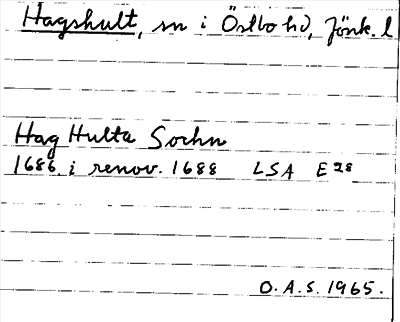 Hagshult, sn i Östbo hd, Jönk. l
Hag Hulta Sochn
1686 i renov. 1688 LSA E 28
O.A.S. 1965.